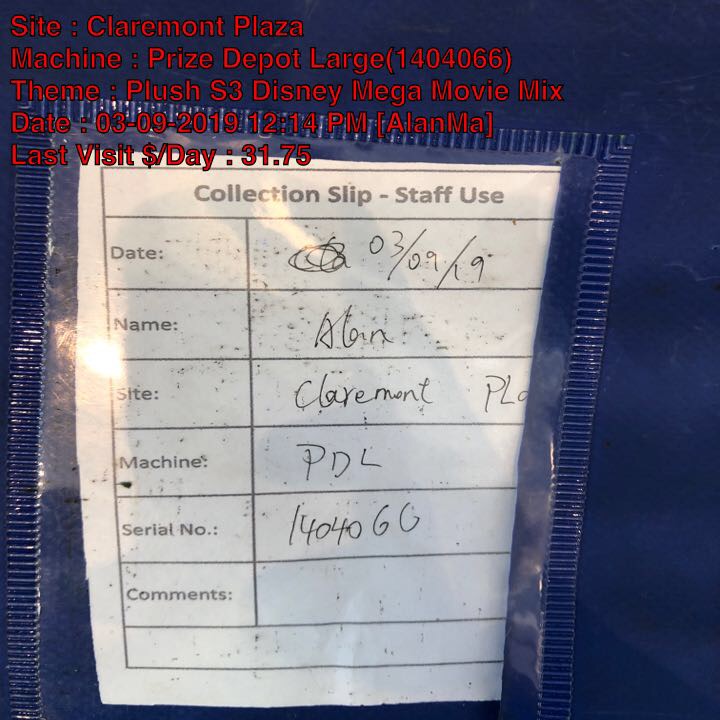 Site : Claremont Plaza
Machine : Prize Depot Large(1404066)
Theme : Plush S3 Disney Mega Movie Mix
Date : 03-09-2019 12:14 PM [AlanMa]
Last Visit $/Day : 31.75
Collection Slip - Staff Use
Date: 03/09/19
Name: Alan
Site: Claremont Pla
Machine: PDL
Serial No.: 1404066
Comments: